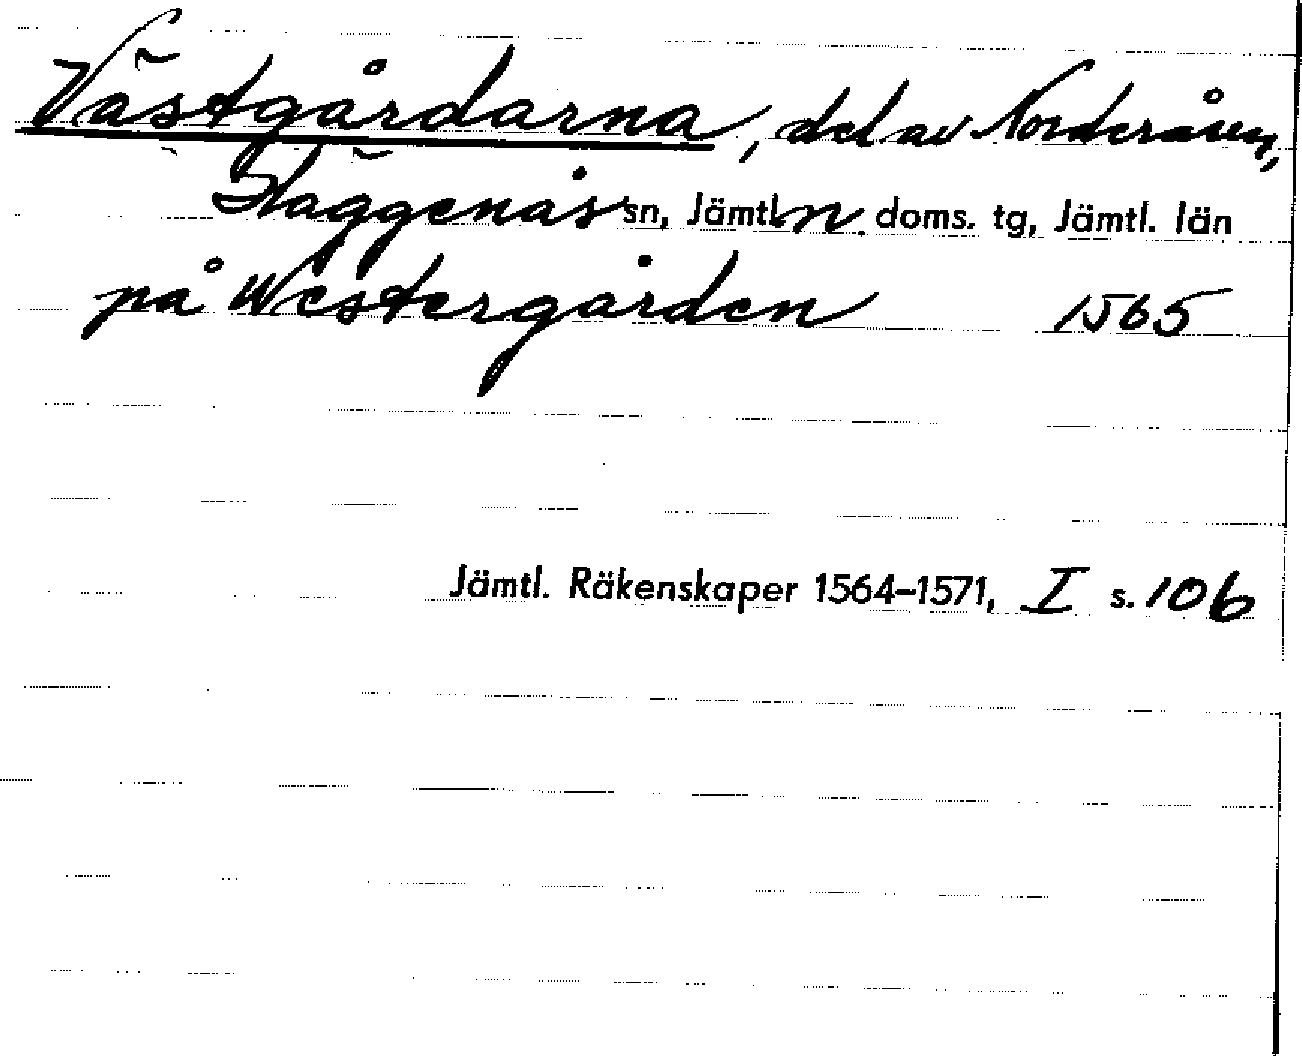 Västgårdarna, del av Norderåsen,
Häggenås sn, Jämtl. n. doms. tg, Jämtl. län
på Westergården 1565
Jämtl. Räkenskaper 1564–1571, I s. 106